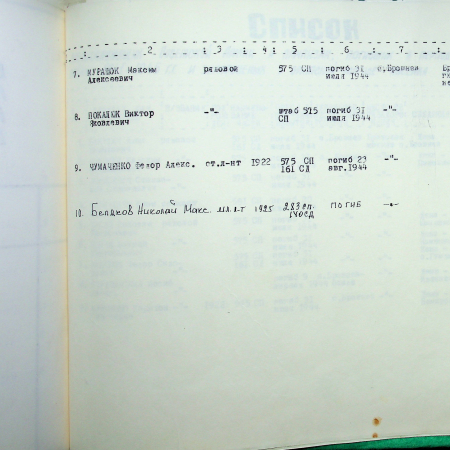 : 2 : 3 : 4 : 5 : 6 : 7 :
7. МУРАШОК Максим рядовой 575 СП погиб 31 с.Бровней
Алексеевич июля 1944
8. ПОКАЛЮК Виктор -"- штаб 575 погиб 31 -"-
Яковлевич СП июля 1944
9. ЧУМАЧЕНКО Федор Алекс. ст.л-нт 1922 575 СП погиб 23 -"-
161 СД авг.1944
10. Беляков Николай Макс. мл. л-т 1925 283 сп. погиб -"-
140СД